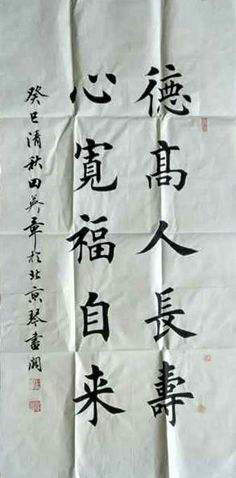 德高人長壽
心寬福自来
癸巳清秋田英章於北京琴書閣